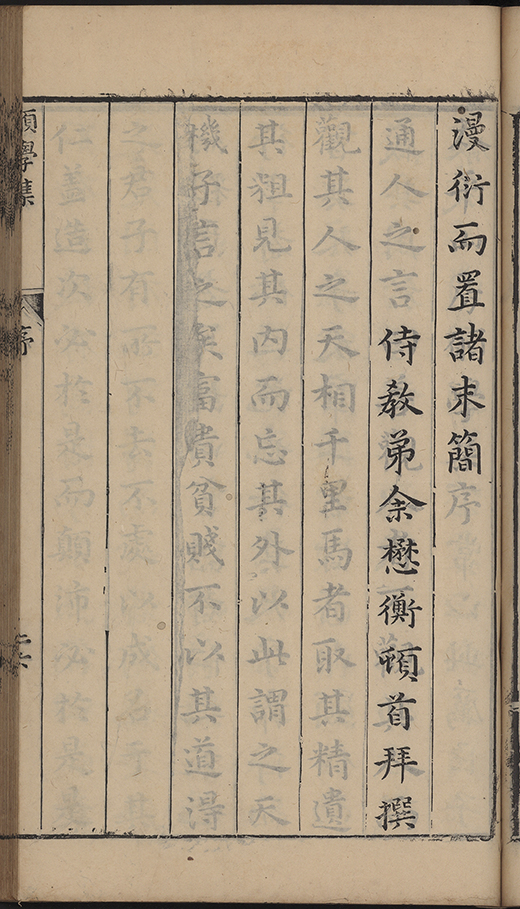 漫衍而置諸末簡
通人之言
侍教弟余懋衡頓首拜撰
觀其人之天相千里馬者取其精遺
其粗見其内而忘其外以此謂之天
機子言之矣富貴貧賤不以其道淂
之君子有所不去不處以成君子
仁蓋造次必於是而顛沛必於是
願學集
序